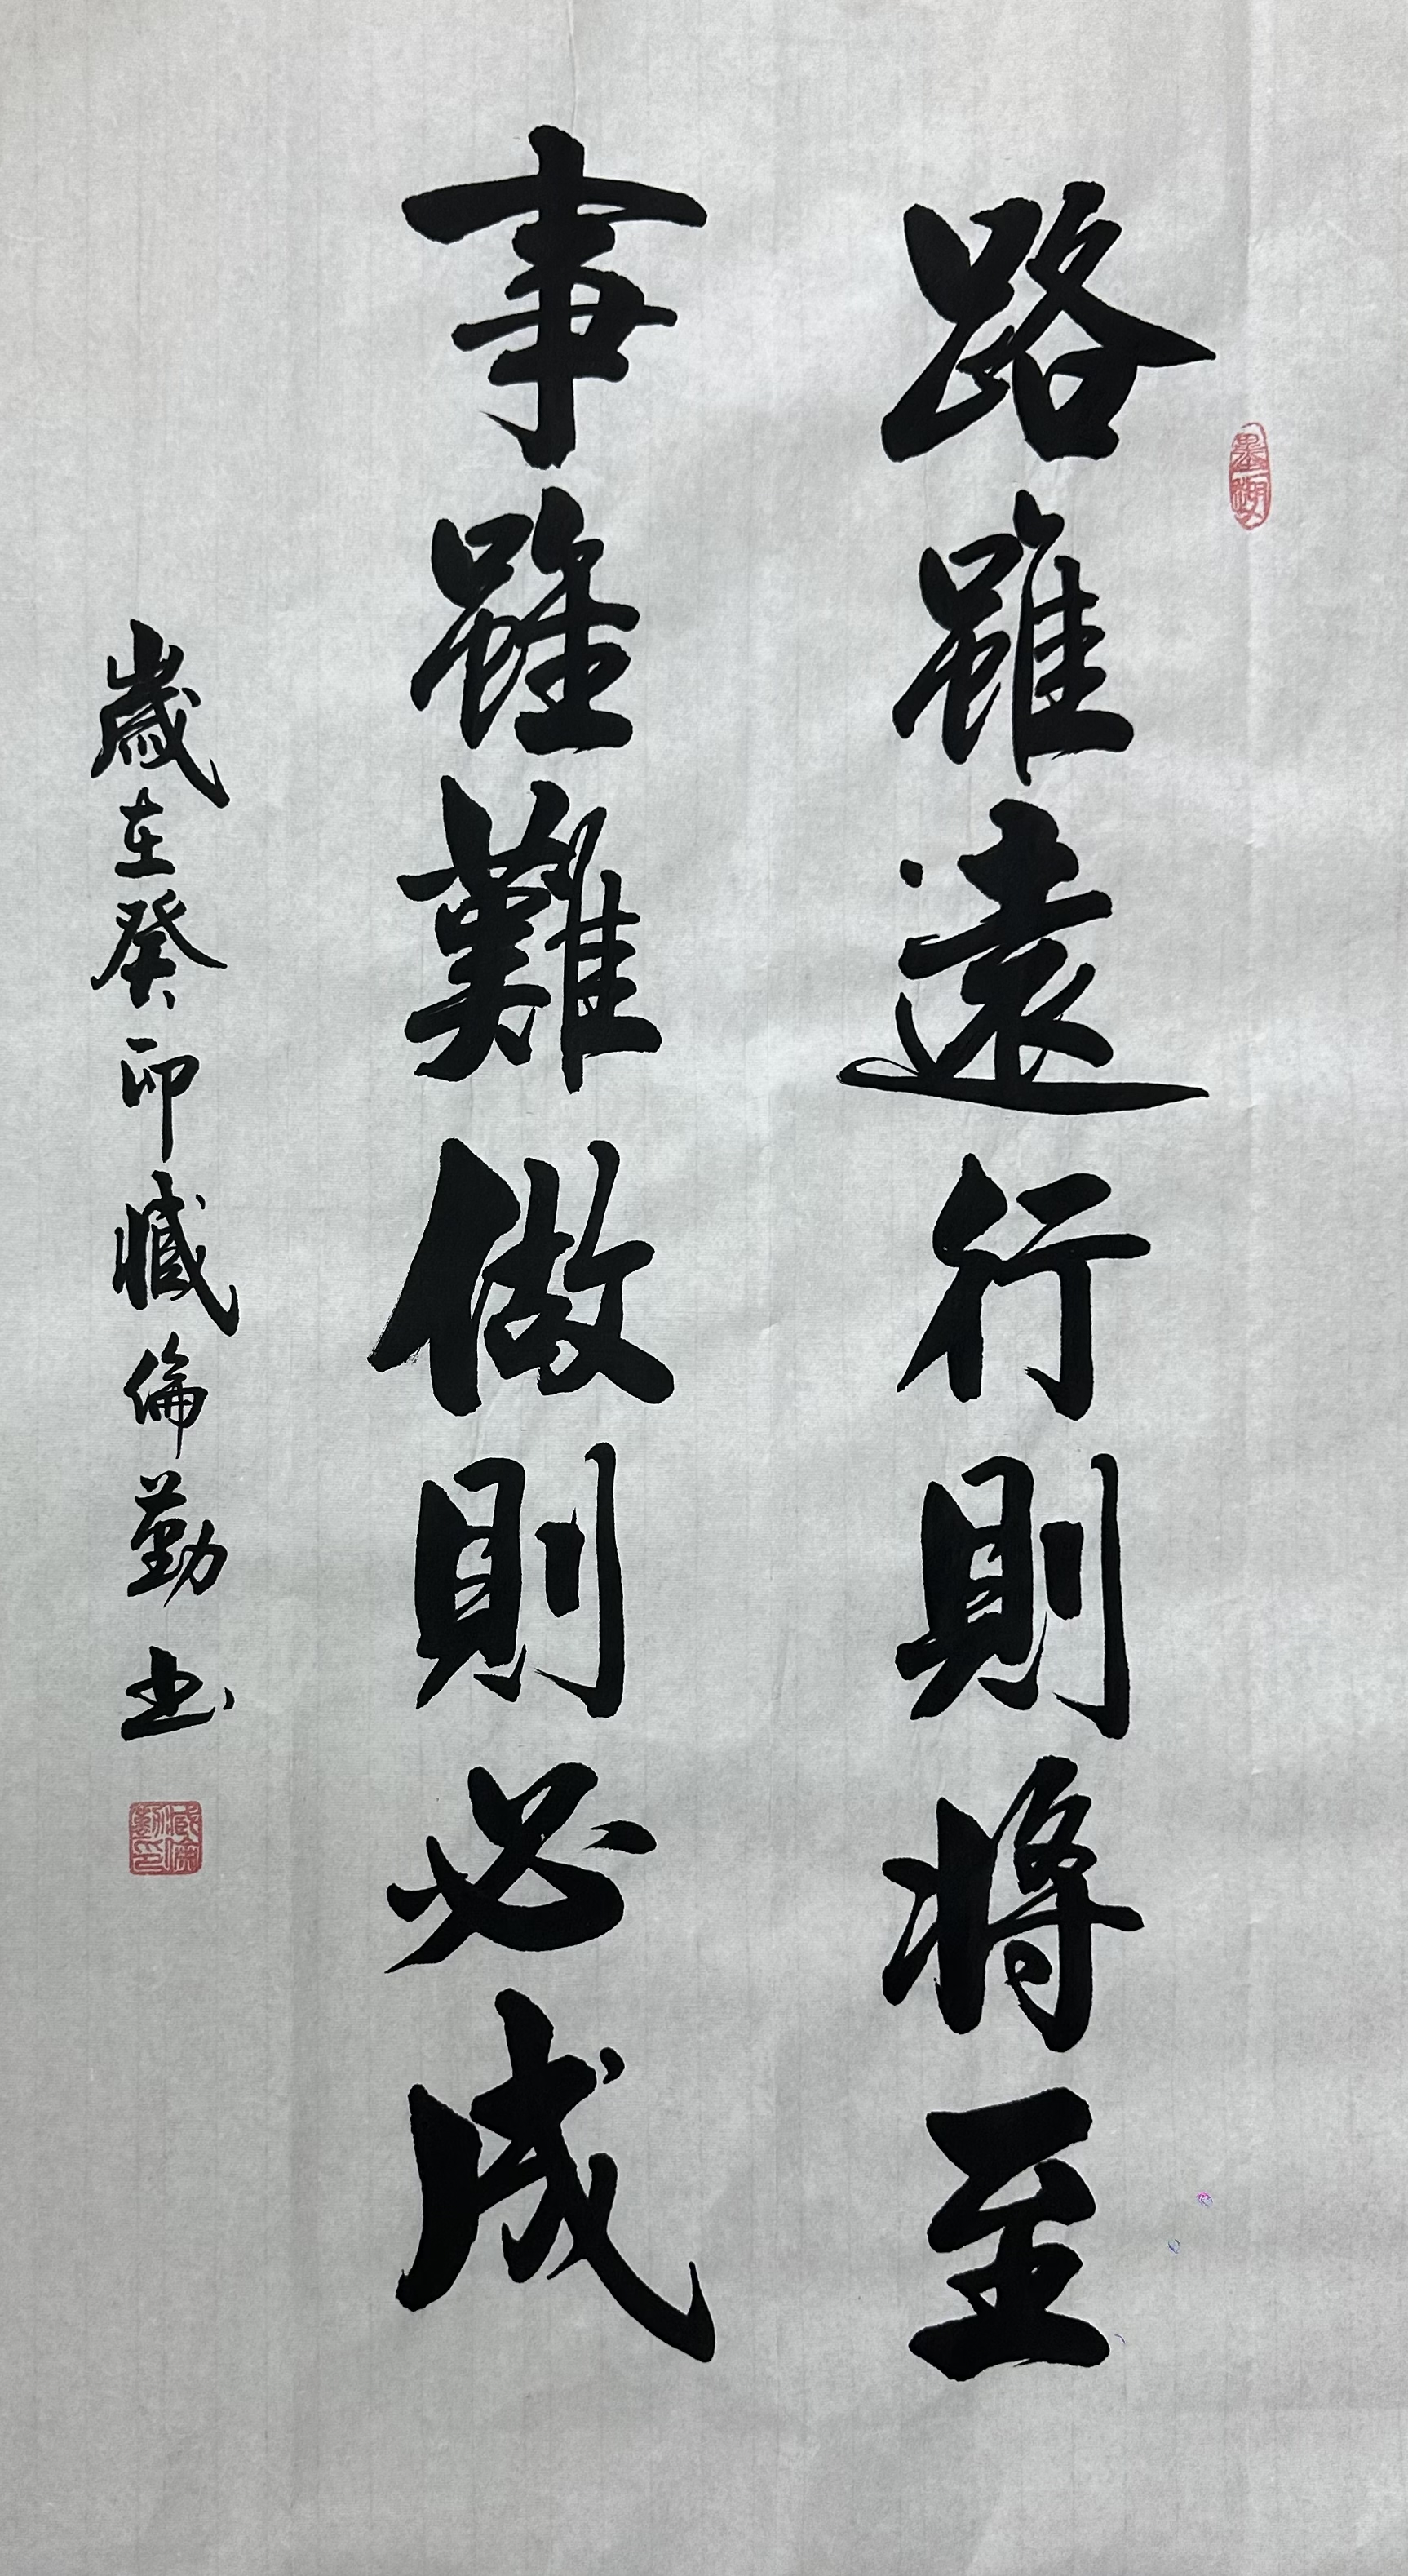 路雖遠行則將至
事雖難做則必成
歲在癸卯臧倫勤书
臧倫勤印